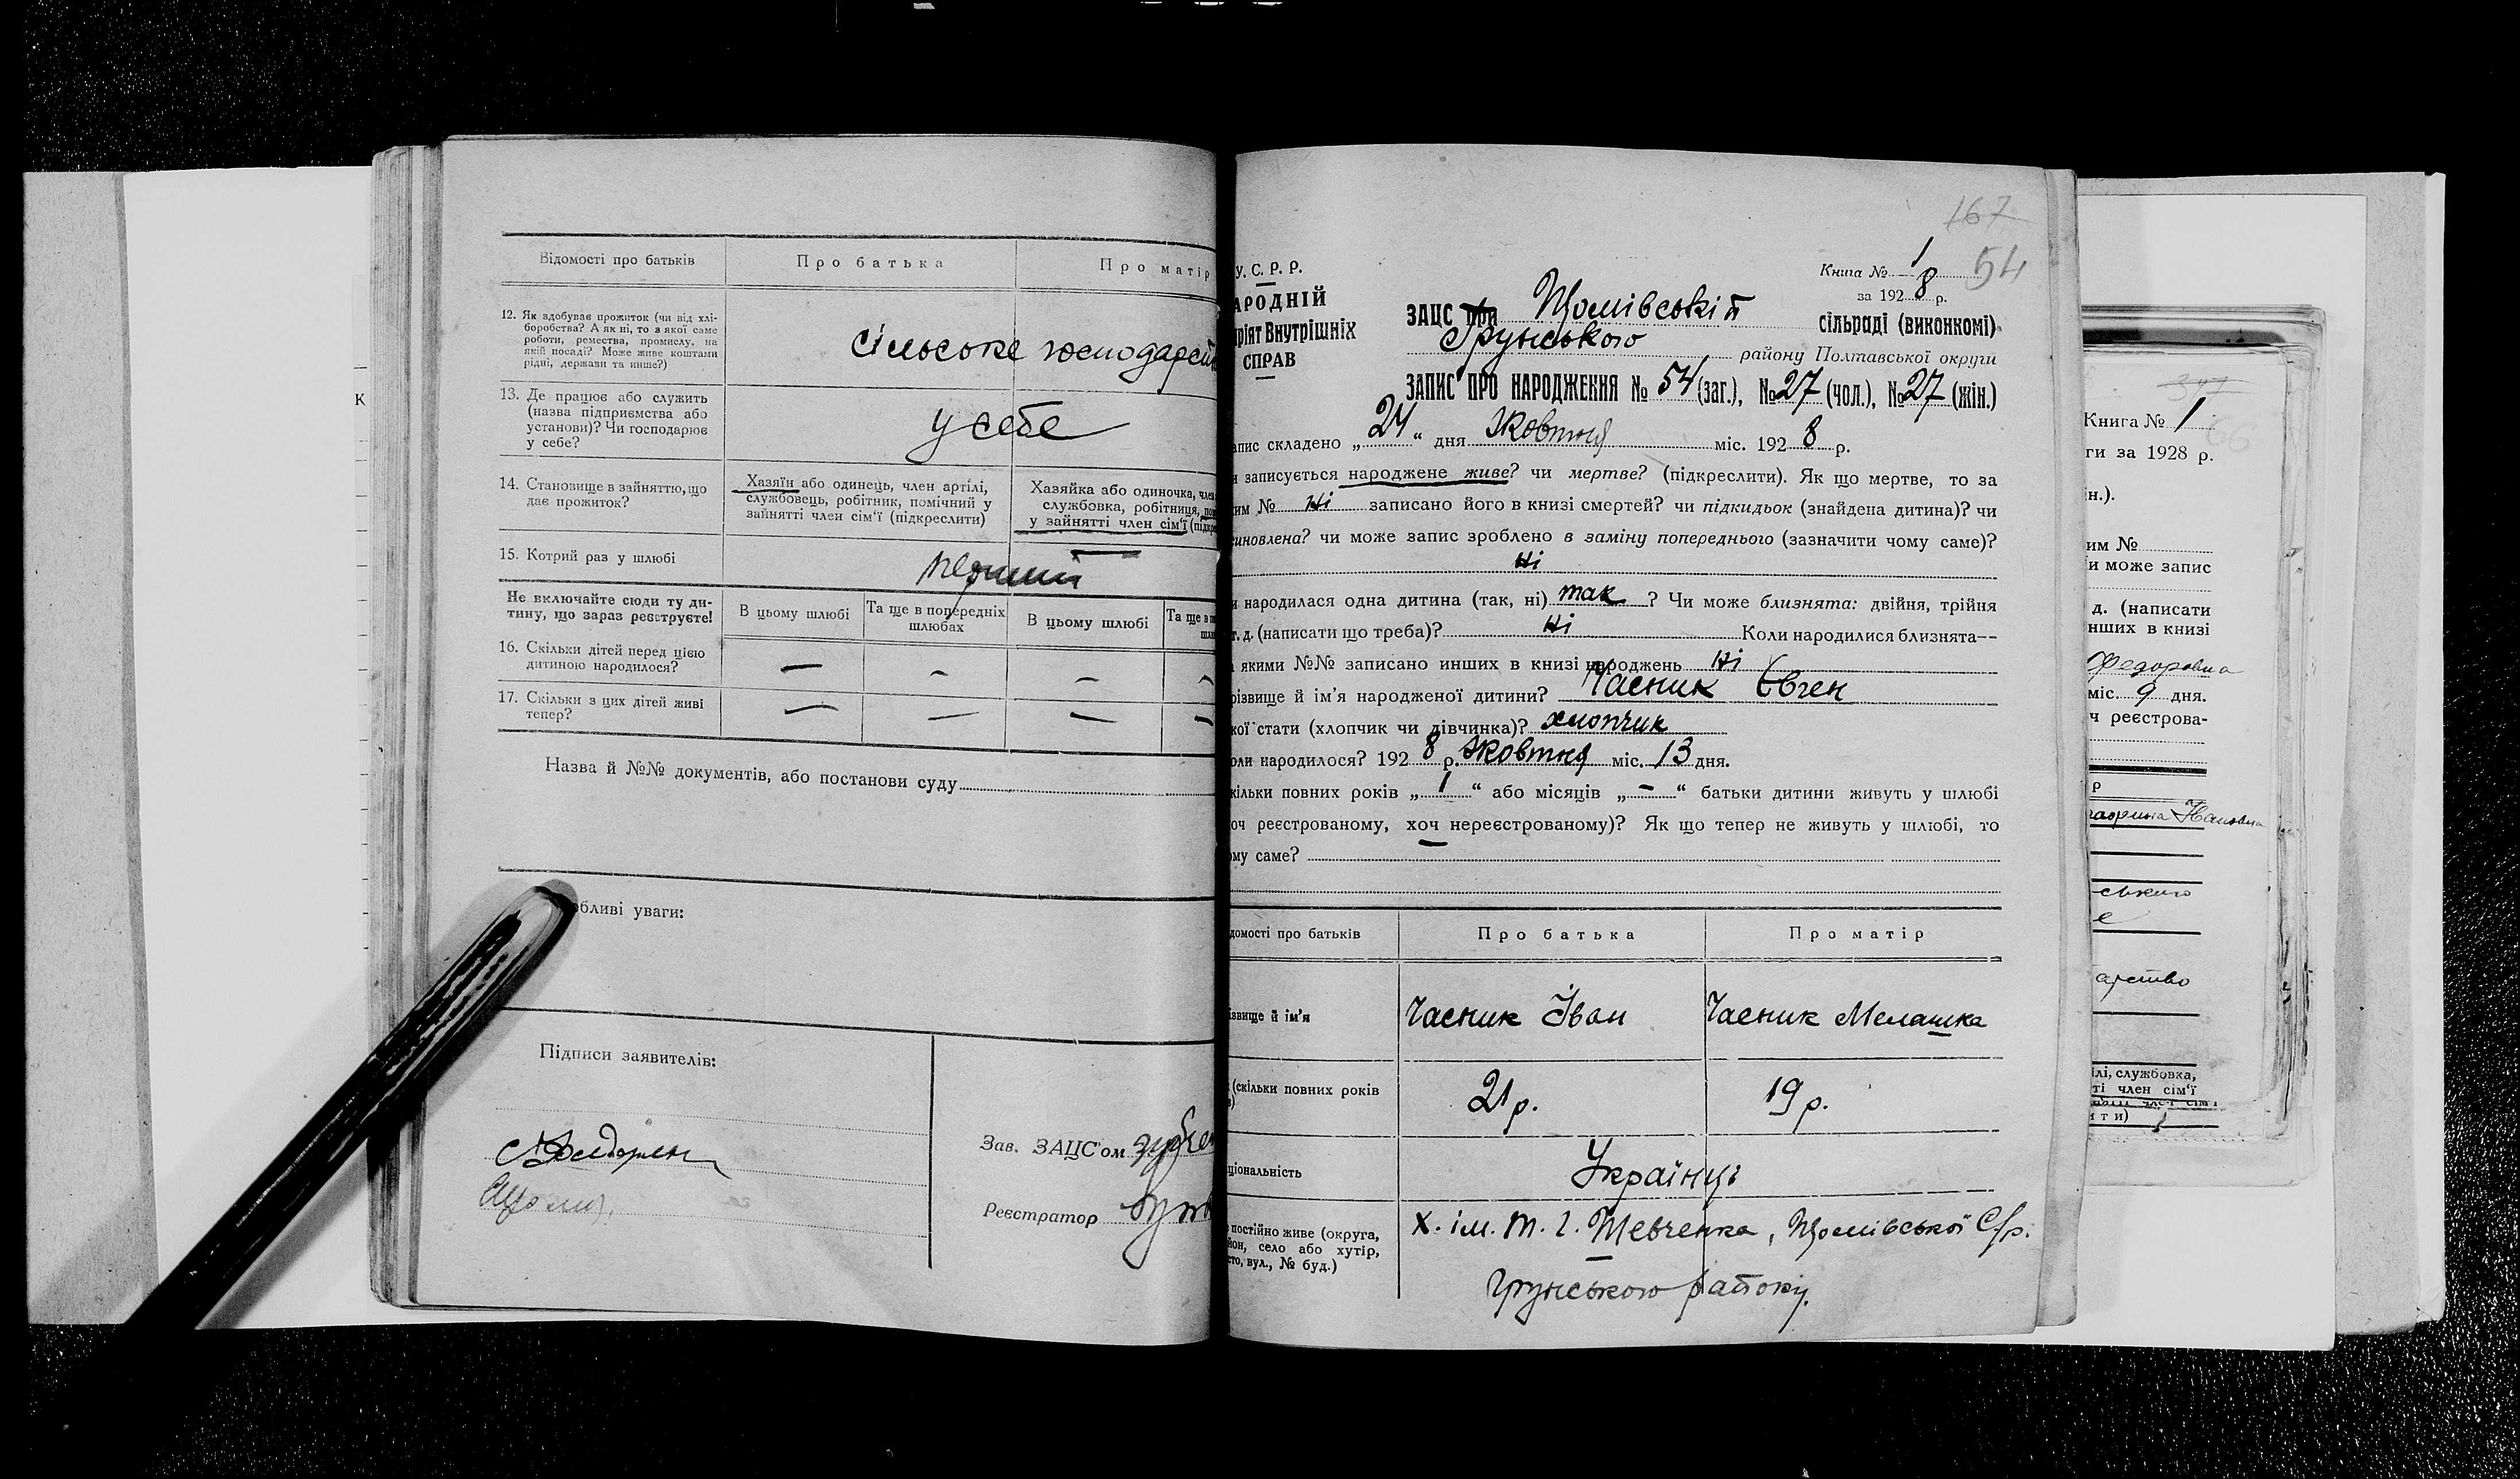 Відомості про батьків
Про батька
Про матір
12. Як здобуває прожиток (чи від хлі-
боробства? А як ні, то з якої саме
роботи, ремества, промислу, на
якій посаді? Може живе коштами
рідні, держави та инше?)
сільське господарст
13. Де працює або служить
(назва підприємства або
установи)? Чи господарює
у себе?
у себе
14. Становище в зайняттю, що
дає прожиток?
Хазяїн або одинець, член артілі,
службовець, робітник, помічний у
зайнятті член сім'ї (підкреслити)
Хазяйка або одиночка, член
службовка, робітниця, пом
у зайнятті член сім'ї (підкре
15. Котрий раз у шлюбі
перший
Не включайте сюди ту ди-
тину, що зараз реєструєте!
В цьому шлюбі
Та ще в попередніх
шлюбах
В цьому шлюбі
Та ще в п
шлю
16. Скільки дітей перед цією
дитиною народилося?
— — — —
17. Скільки з цих дітей живі
тепер?
— — — —
Назва й №№ документів, або постанови суду
обливі уваги:
Підписи заявителів:
Зав. ЗАЦС'ом
Реєстратор
167
54
У. С. Р. Р.
АРОДНІЙ
ріят Внутрішніх
СПРАВ
Книга № 1
за 1928 р.
ЗАЦС при Щомівській сільраді (виконкомі)
Грунського району Полтавської округи
ЗАПИС ПРО НАРОДЖЕННЯ № 54 (заг.), № 27 (чол.), № 27 (жін.)
апис складено „24“ дня Жовтня міс. 1928 р.
и записується народжене живе? чи мертве? (підкреслити). Як що мертве, то за
ким № Ні записано його в книзі смертей? чи підкидьок (знайдена дитина)? чи
иновлена? чи може запис зроблено в заміну попереднього (зазначити чому саме)?
Ні
и народилася одна дитина (так, ні) так ? Чи може близнята: двійня, трійня
т. д. (написати що треба)? Ні Коли народилися близнята—
якими №№ записано инших в книзі народжень Ні
різвище й ім'я народженої дитини? Часник Євген
кої стати (хлопчик чи дівчинка)? хлопчик
оли народилося? 1928 р. Жовтня міс. 13 дня.
кільки повних років „1“ або місяців „-“ батьки дитини живуть у шлюбі
оч реєстрованому, хоч нереєстрованому)? Як що тепер не живуть у шлюбі, то
ому саме?
домості про батьків
Про батька
Про матір
ізвище й ім'я
Часник Іван
Часник Мелашка
(скільки повних років
21 р.
19 р.
ціональність
Українці
постійно живе (округа,
йон, село або хутір,
сто, вул., № буд.)
х. ім. Т. Г. Шевченка, Щомівської С/р.
Грунського району.
Книга № 1
ги за 1928 р.
н.).
им №
и може запис
д. (написати
нших в книзі
Федоровна
міс. 9 дня.
ч реєстрова-
р
ського
е
арство
лі, службовка,
ті член сім'ї
ити)